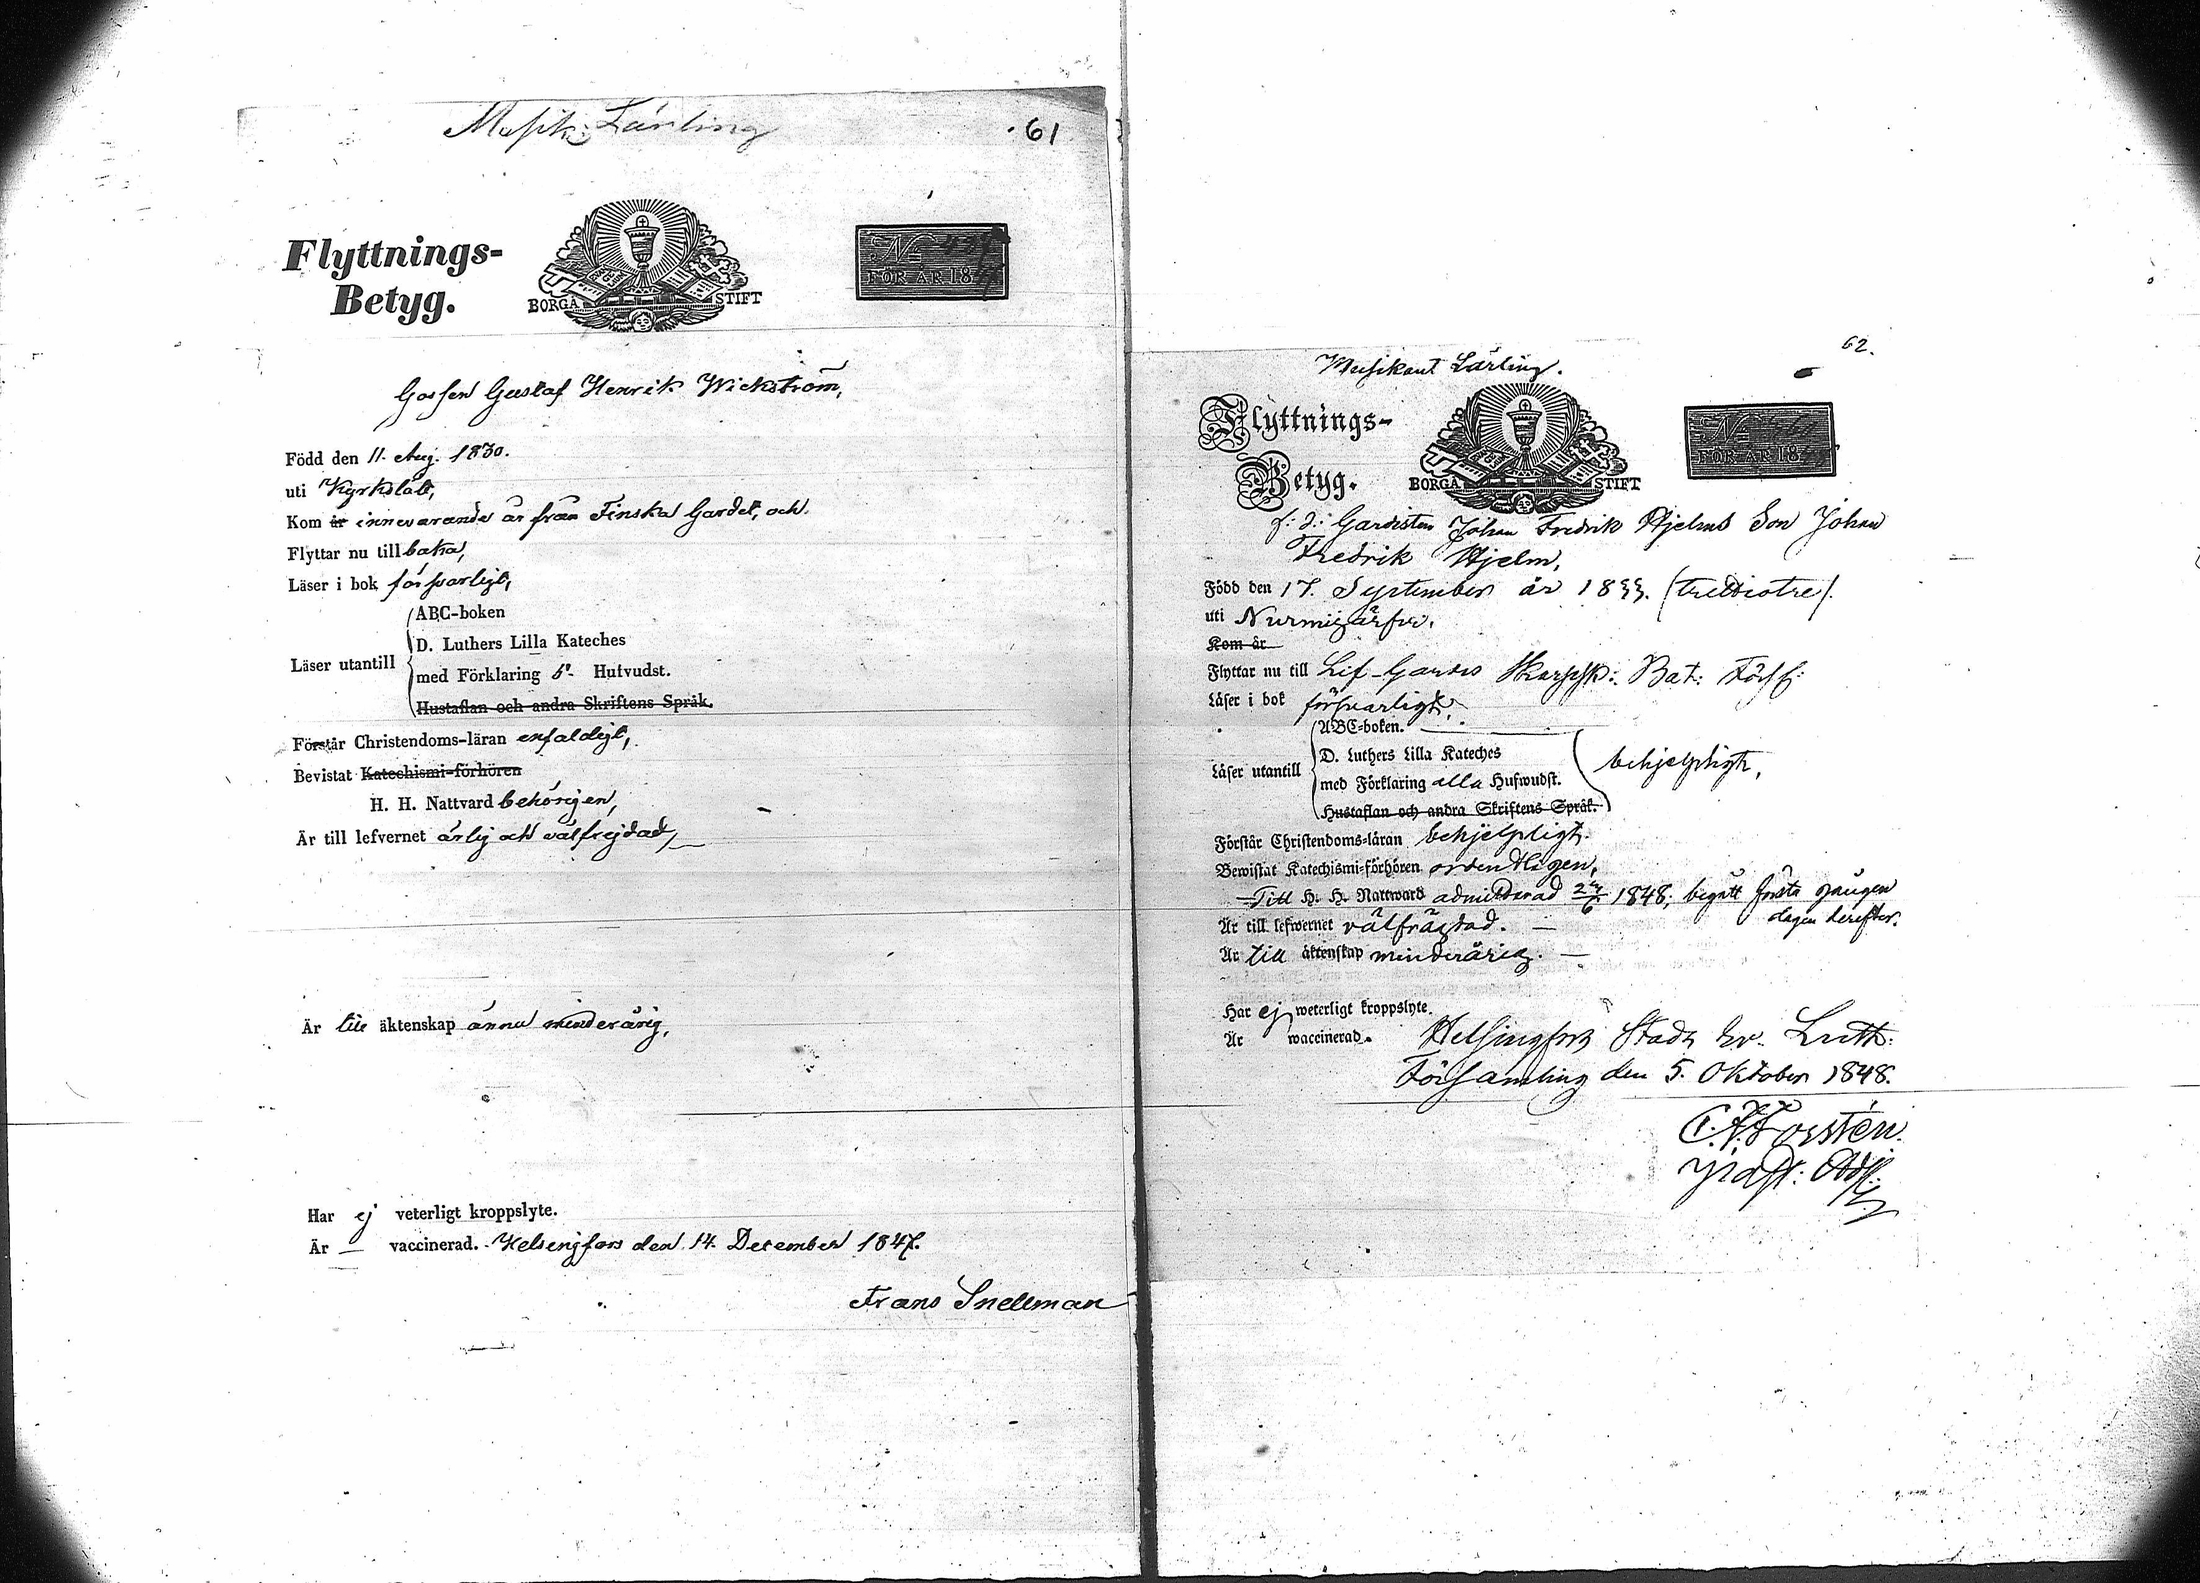 Musik: Lärling
61
Flyttnings-
Betyg.
BORGÅ STIFT
No
FÖR ÅR 18
Gossen Gustaf Henrik Wickström,
Född den 11. Aug. 1830.
uti Kyrkslätt,
Kom år innevarande år från Finska Gardet, och
Flyttar nu tillbaka,
Läser i bok försvarligt,
Läser utantill
ABC-boken
D. Luthers Lilla Kateches
med Förklaring 5. Hufvudst.
Hustaflan och andra Skriftens Språk.
Förstår Christendoms-läran enfaldigt,
Bevistat Katechismi-förhören
H. H. Nattvard behörigen,
Är till lefvernet ärlig och välfrejdad,
Är till äktenskap ännu minderårig,
Har ej veterligt kroppslyte.
Är — vaccinerad. Helsingfors den 14. December 1847.
Frans Snellman
62.
Musikant Lärling.
Flyttnings-
Betyg.
BORGÅ STIFT
No
FÖR ÅR 18
f: d: Gardisten Johan Fredrik Hjelms Son Johan
Fredrik Hjelm,
Född den 17. September år 1833. (trettiotre).
uti Nurmijärfvi.
Kom år
Flyttar nu till Lif-Gardes Skarpsk: Bat: Förs:
Läser i bok försvarligt.
Läser utantill
ABC-boken.
D. Luthers Lilla Kateches
med Förklaring alla Hufwudst.
Hustaflan och andra Skriftens Språk.
behjelpligt,
Förstår Christendoms-läran behjelpligt.
Bewistat Katechismi-förhören ordentligen,
Till H. H. Nattward admitterad 1848; begått första gången
dagen derefter.
Är till lefwernet välfrägdad. —
Är till äktenskap minderårig. —
Har ej weterligt kroppslyte.
Är waccinerad. Helsingfors Stads Ev. Luth:
Församling den 5. Oktober 1848.
Forstén.